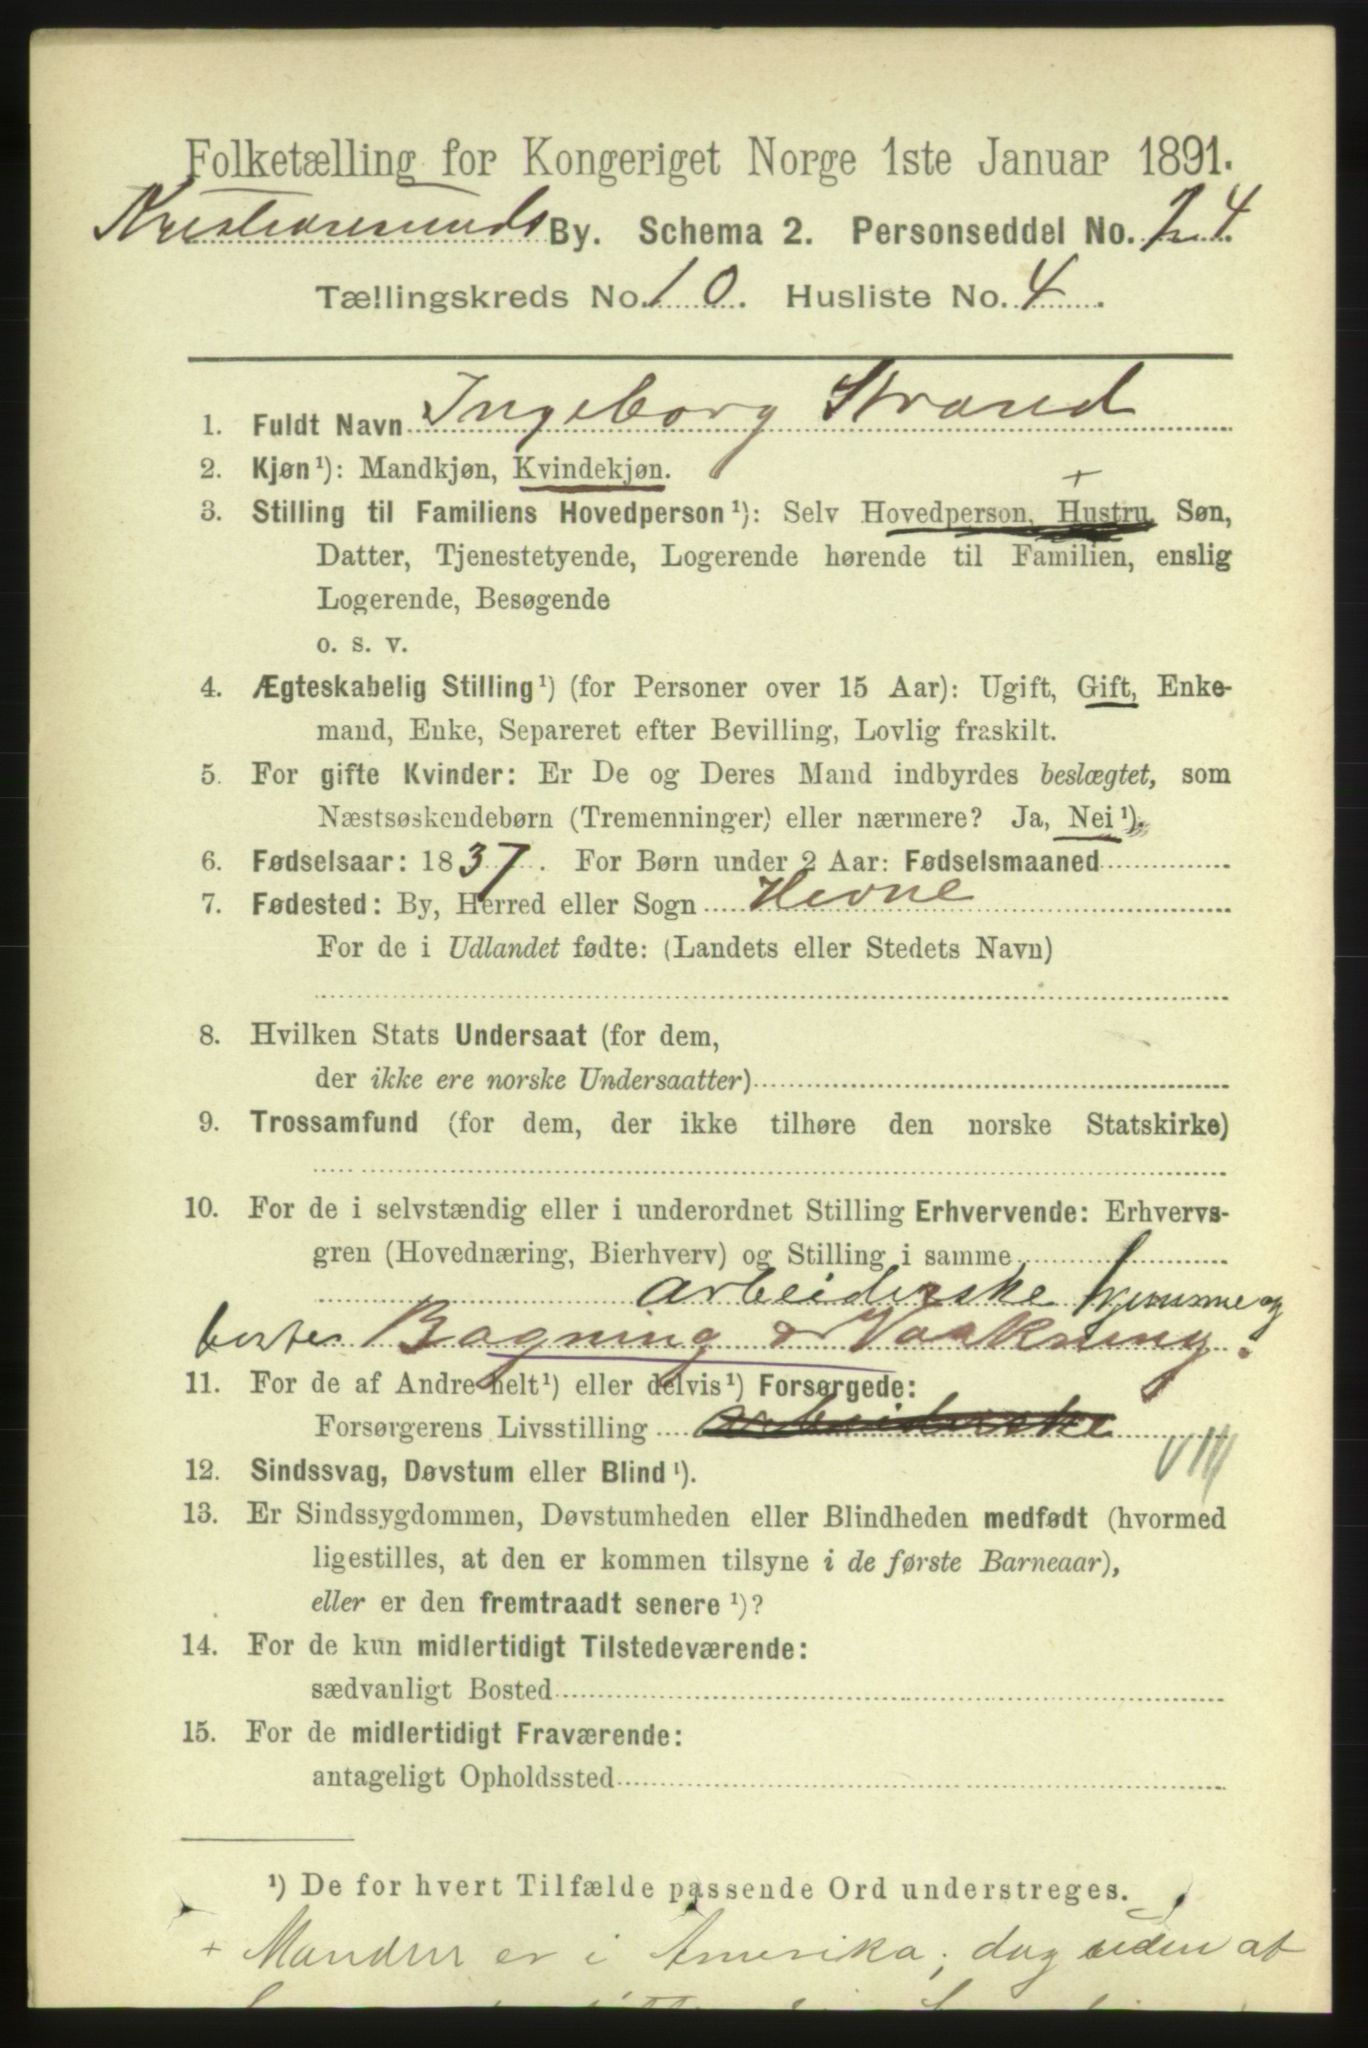 Folketælling for Kongeriget Norge 1ste Januar 1891.
Kristiansunds By. Schema 2. Personseddel No. 24
Tællingskreds No. 10. Husliste No. 4.
1. Fuldt Navn Ingeborg Strand
2. Kjøn¹): Mandkjøn, Kvindekjøn.
+
3. Stilling til Familiens Hovedperson¹): Selv Hovedperson, Hustru, Søn,
Datter, Tjenestetyende, Logerende hørende til Familien, enslig
Logerende, Besøgende
o. s. v.
4. Ægteskabelig Stilling¹) (for Personer over 15 Aar): Ugift, Gift, Enke-
mand, Enke, Separeret efter Bevilling, Lovlig fraskilt.
5. For gifte Kvinder: Er De og Deres Mand indbyrdes beslægtet, som
Næstsøskendebørn (Tremenninger) eller nærmere? Ja, Nei¹).
6. Fødselsaar: 1837. For Børn under 2 Aar: Fødselsmaaned
7. Fødested: By, Herred eller Sogn Hevne
For de i Udlandet fødte: (Landets eller Stedets Navn)
8. Hvilken Stats Undersaat (for dem,
der ikke ere norske Undersaatter)
9. Trossamfund (for dem, der ikke tilhøre den norske Statskirke)
10. For de i selvstændig eller i underordnet Stilling Erhvervende: Erhvervs-
gren (Hovednæring, Bierhverv) og Stilling i samme
arbeiderske hjemme og
borte Bagning & Vaskning.
11. For de af Andre helt¹) eller delvis¹) Forsørgede:
Forsørgerens Livsstilling arbeiderske
VIII
12. Sindssvag, Døvstum eller Blind¹).
13. Er Sindssygdommen, Døvstumheden eller Blindheden medfødt (hvormed
ligestilles, at den er kommen tilsyne i de første Barneaar),
eller er den fremtraadt senere¹)?
14. For de kun midlertidigt Tilstedeværende:
sædvanligt Bosted
15. For de midlertidigt Fraværende:
antageligt Opholdssted
¹) De for hvert Tilfælde passende Ord understreges.
+ Manden er i Amerika, dog uden at